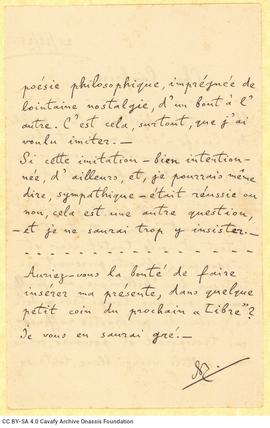 poésie philosophique, imprégnée de
lointaine nostalgie, d'un bout à l'
autre. C'est cela, surtout, que j'ai
voulu imiter. —
Si cette imitation — bien intention-
née, d'ailleurs, et, je pourrais même
dire, sympathique — était réussie ou
non, cela est une autre question,
— et je ne saurai trop y insister. —
- - - - - - - - - - - - - - - -
Auriez-vous la bonté de faire
insérer ma présente, dans quelque
petit coin du prochain "Libre"?
Je vous en saurai gré. —
CC BY-SA 4.0 Cavafy Archive Onassis Foundation